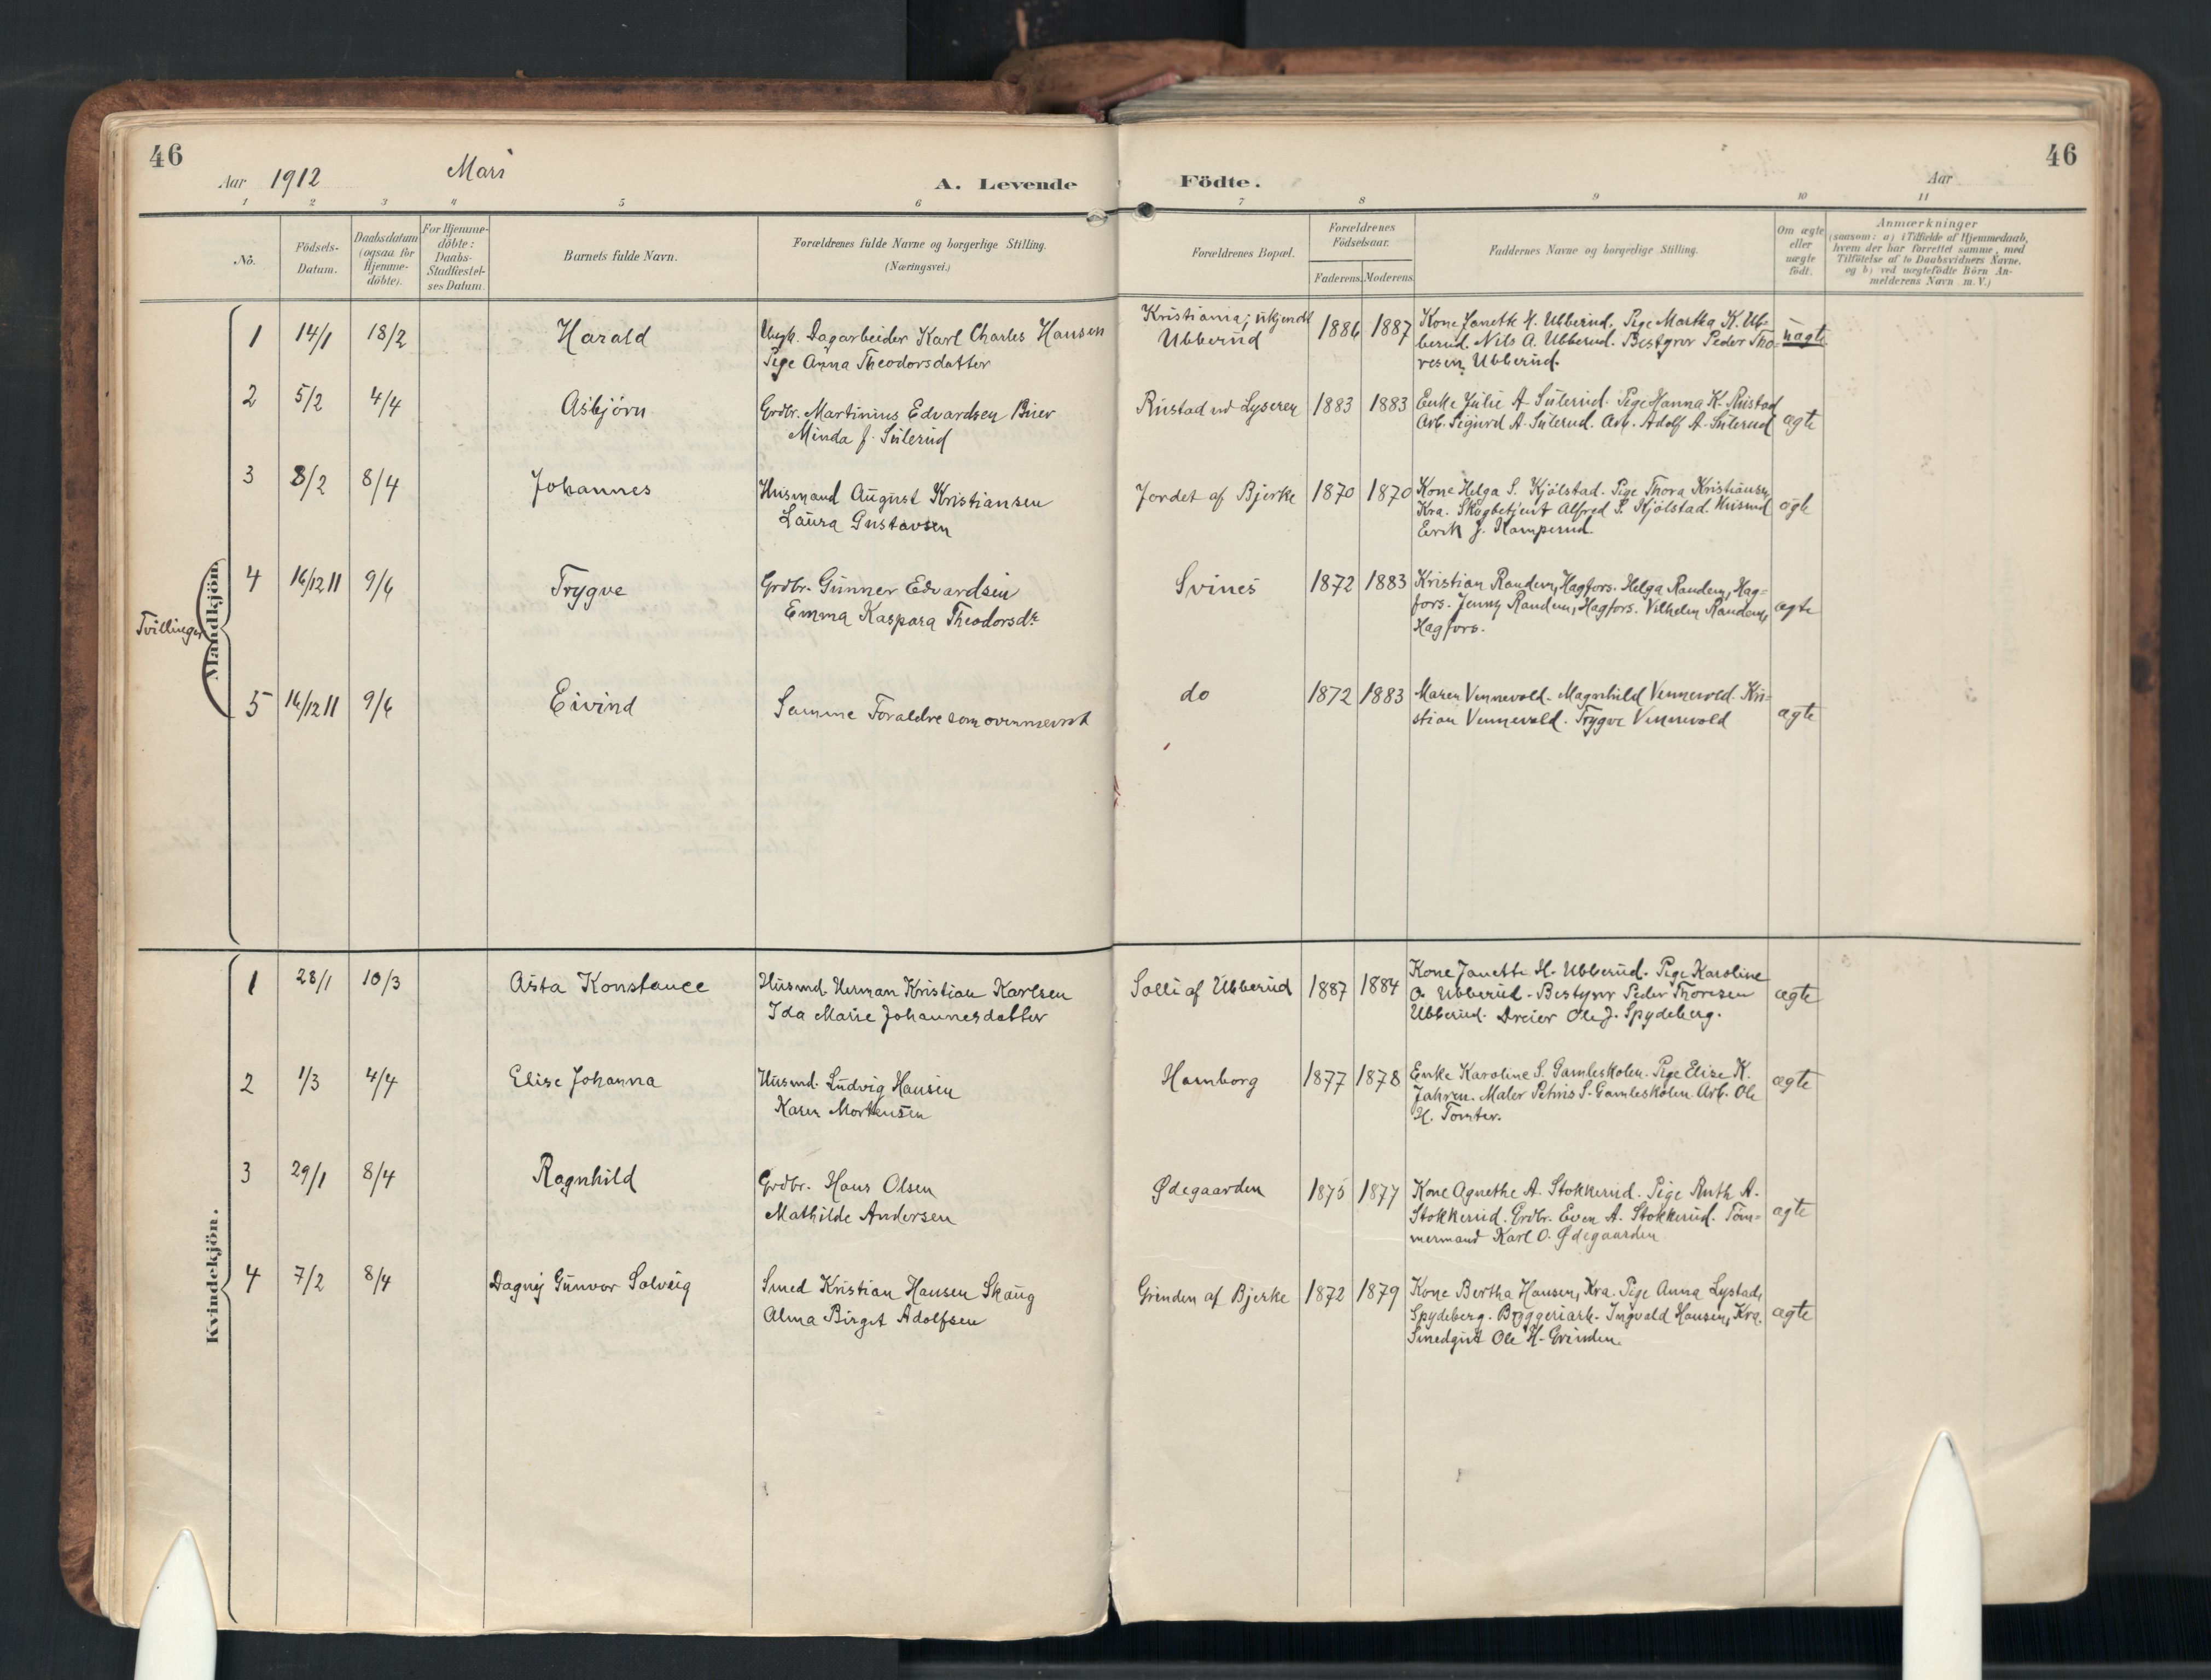 46
Aar 1912 Mars A. Levende
1 2 3 4 5 6
No. Födsels-Datum. Daabsdatum (ogsaa for Hjemme-döbte). For Hjemme-döbte: Daabs-Stadfæstel-ses Datum. Barnets fulde Navn. Forældrenes fulde Navne og borgerlige Stilling. (Næringsvei.)
Födte. 46
Aar
7 8 9 10 11
Forældrenes Bopæl. Forældrenes Födselsaar. Faderens. Moderens. Faddernes Navne og borgerlige Stilling. Om ægte eller uægte födt. Anmærkninger
(saasom: a) i Tilfælde af Hjemmedaab, hvem der har forrettet samme, med Tilföielse af to Daabsvidners Navne, og b) ved uægtefödte Börn An-melderens Navn m. V.)
Mandkjön
Tvillinger
1 14/1 18/2 Harald Ungk. Dagarbeider Karl Charles Hansen
Pige Anna Theodorsdatter
Kristiania; ukjendt
Ubberud
1886 1887 Kone Janette H. Ubberud. Pige Martha K. Ub-
berud. Nils A. Ubberud. Bestyrer Peder Tho-
resen, Ubberud.
uægte
2 5/2 4/4 Asbjørn Grdbr. Martinius Edvardsen
Minda J. Sulerud
Rustad ved Lyseren 1883 1883 Enke Julie A. Sulerud. Pige Hanna K. Rustad
Arb. Sigurd A. Sulerud. Arb. Adolf A. Sulerud
ægte
3 8/2 8/4 Johannes Husmand August Kristiansen
Laura Gustavsen
Jordet af Bjerke 1870 1870 Kone Helga S. Kjölstad. Pige Thora Kristiansen
Kra. Skogbetjent Alfred S. Kjölstad. Husmd
Erik J. Kamperud.
ægte
4 16/12 11 9/6 Trygve Grdbr. Gunner Edvardsen
Emma Kaspara Theodorsdr
Svines 1872 1883 Kristian Randem, Hagfors. Helga Randem, Hag=
fors. Jenny Randem, Hagfors. Vilhelm Randem,
Hagfors.
ægte
5 16/12 11 9/6 Eivind Samme Foraldre som ovennævnt
do 1872 1883 Maren Vennevold. Magnhild Vennevold. Kri=
stian Vennevold. Trygve Vennevold
ægte
Kvindekjön.
1 28/1 10/3 Asta Konstance Husmd. Herman Kristian Karlsen
Ida Marie Johannesdatter
Solli af Ubberud 1887 1884 Kone Janette H. Ubberud. Pige Karoline
O. Ubberud. Bestyrer Peder Thoresen
Ubberud. Dreier Ole J. Spydeberg.
ægte
2 1/3 4/4 Elise Johanna Husmd. Ludvig Hansen
Karen Mortensen
Hamborg 1877 1878 Enke Karoline S. Gamleskolen. Pige Elise K.
Jahren. Maler Petrus S. Gamleskolen. Arb. Ole
H. Tomter.
ægte
3 29/1 8/4 Ragnhild Grdbr. Hans Olsen
Mathilde Andersen
Ødegaarden 1875 1877 Kone Agnethe A. Stokkerud. Pige Ruth A.
Stokkerud. Grdbr. Even A. Stokkerud. Töm=
mermand Karl O. Ødegaarden
ægte
4 7/2 8/4 Dagny Gunvor Solveig Smed Kristian Hansen Skaug
Alma Birgit Adolfsen
Grinden af Bjerke 1872 1879 Kone Bertha Hansen, Kra. Pige Anna Lystad,
Spydeberg. Bryggeriarb. Ingvald Hansen, Kra.
Smedgut Ole H. Grinden.
ægte